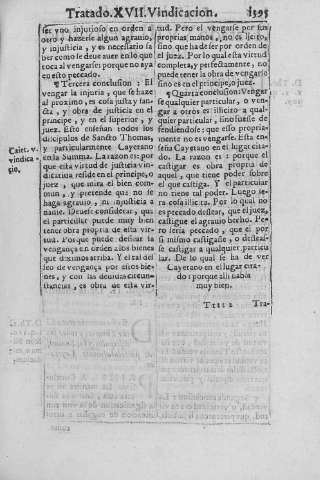 Tratado.XVII.Vindicacion. 1395
ser vno injurioso en orden a
otro y hazerse algun agrauio,
y injusticia, y es necessario sa
ber como se deue auer en lo que
toca al vengarse: porque no aya
en esto peccado.
¶ Tercera conclusion: El
vengar la injuria, que se haze
al proximo, es cosa justa y san-
cta, y obra de justicia en el
principe, y en el superior, y
juez. Esto enseñan todos los
discipulos de Sancto Thomas,
y particularmente Cayetano
en la Summa. La razon es: por
que esta virtud de justicia vin-
dicatiua reside en el principe, o
juez, que mira el bien com-
mun, y pretende que no se
haga agrauio, ni injusticia a
nadie. Deuese considerar, que
el particular puede muy bien
tener obra propria de esta vir-
tud. Porque puede dessear la
vengança en orden a los bienes
que diximos arriba. Y el tal des
seo de vengança por essos bie-
nes, y con las deuidas circun-
stancias, es obra de esta vir-
Caiet. v.
vindica -
tio.
tud. Pero el vengarse por sus
proprias manos, no es licito,
sino que ha de ser por orden de
el juez. Por lo qual esta virtud
completa, y perfectamente, no
puede tener la obra de vengarse
sino es en el principe, o juez.
¶ Quarta conclusion: Vengar
se qualquier particular, o ven-
gar a otros es illicito a qual-
quier particular, sino fuesse de
fendiendose: que esso propria-
mente no es vengarse. Esta en-
seña Cayetano en el lugar cita-
do. La razon es: porque el
castigar es obra propria de
aquel, que tiene poder sobre
el que castiga. Y el particular
no tiene tal poder. Luego se-
ra cosa illicita. Por lo qual no
es peccado dessear, que el juez,
castigue el agrauio hecho. Pe-
ro sera peccado, que el por
si mismo castigasse, o dessear-
le castigar a qualquier particu
lar. De lo qual se ha de ver
Cayetano en el lugar cita-
do: porque alli habla
muy bien.
Tttt 2 Tra-